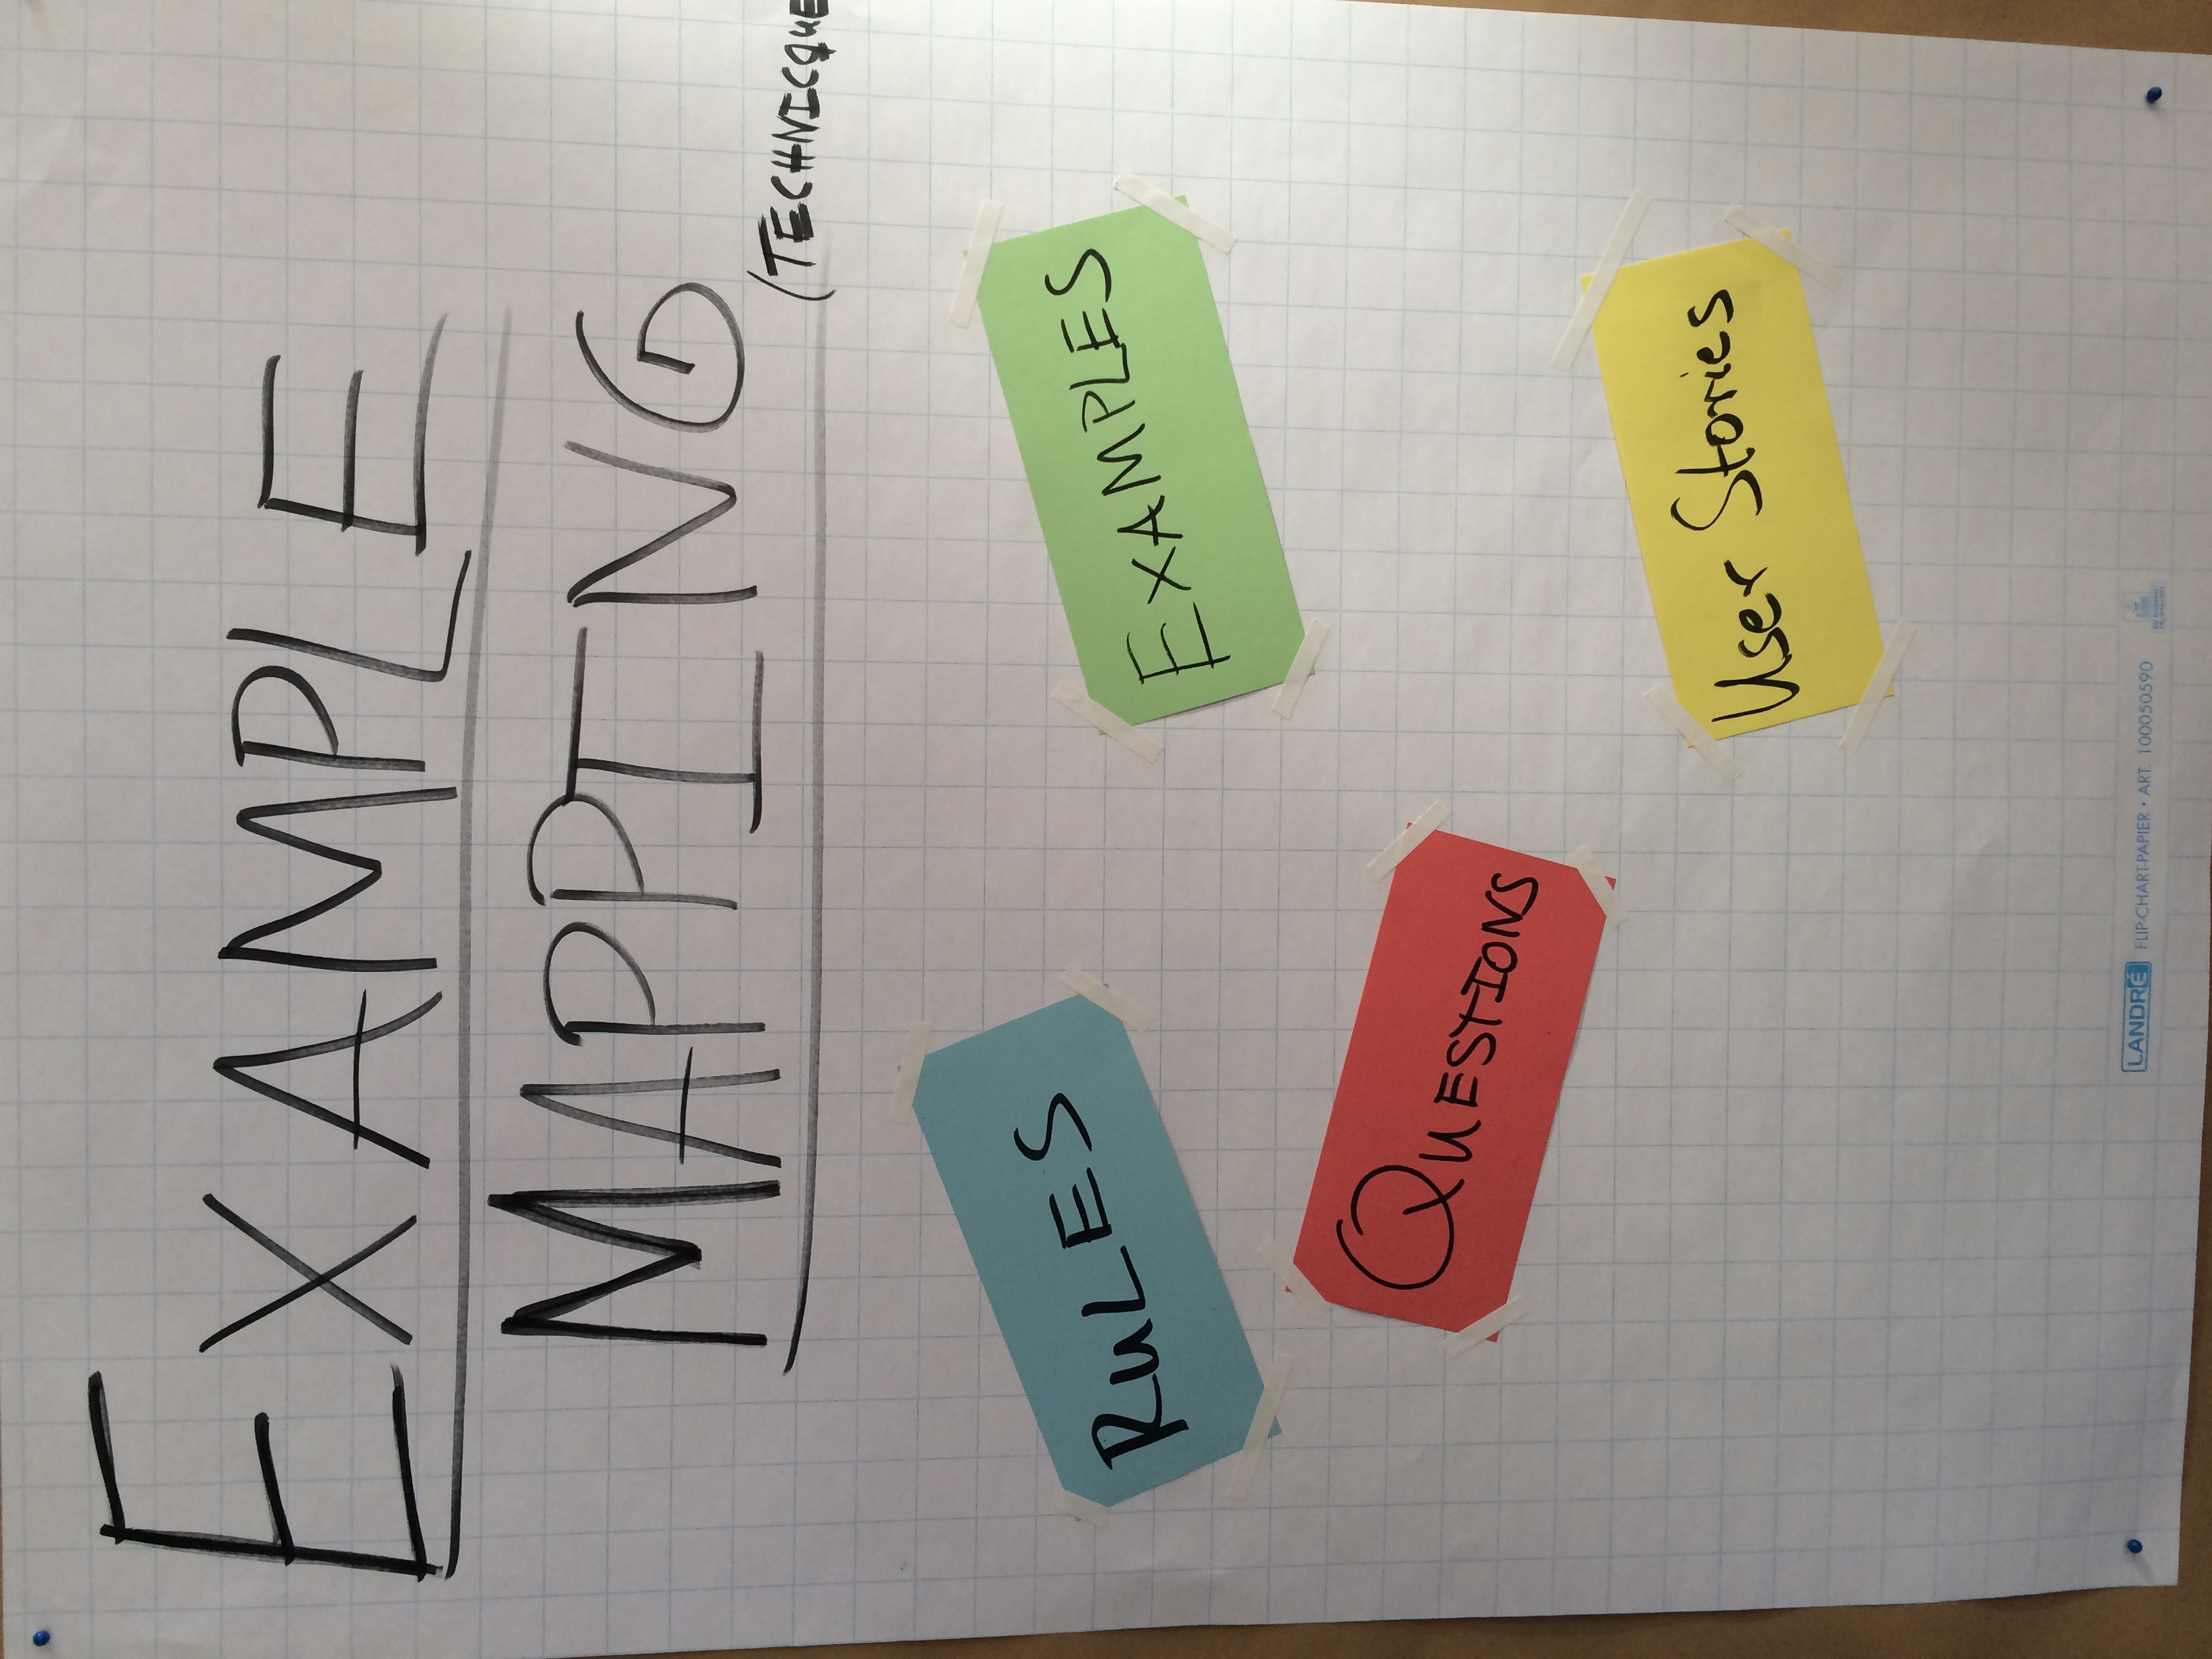 EXAMPLE
MAPPING
(TECHNICQUE
RULES
EXAMPLES
QUESTIONS
User Stories
LANDRÉ FLIP-CHART-PAPIER • ART. 100050590